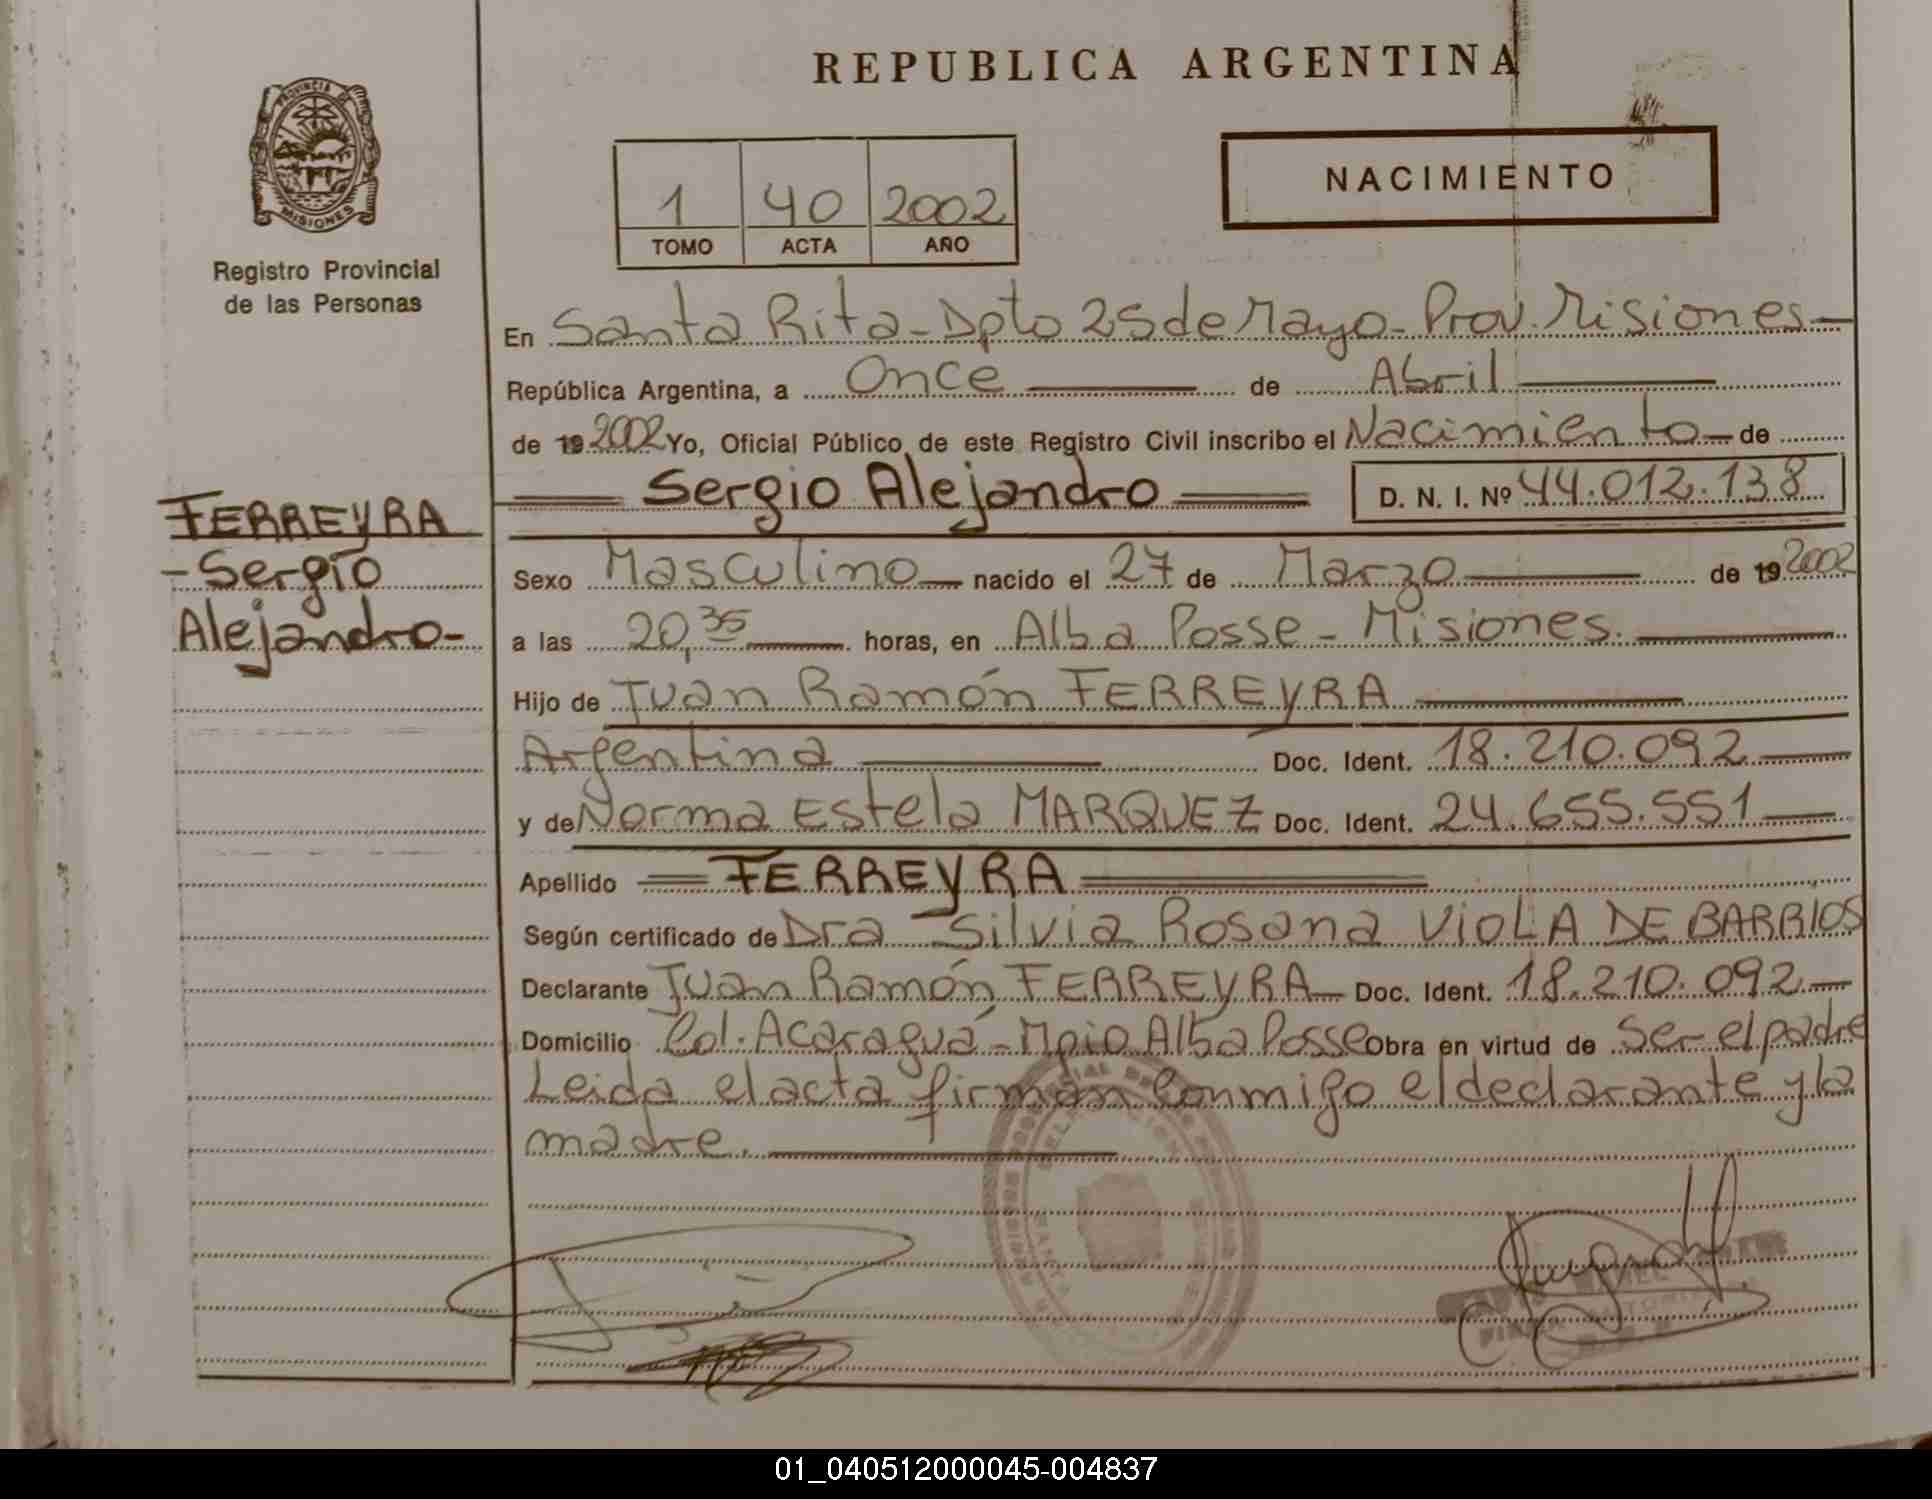 REPUBLICA ARGENTINA
PROVINCIA DE MISIONES
Registro Provincial
de las Personas
1 40 2002
TOMO ACTA AÑO
NACIMIENTO
En Santa Rita - Dpto 25 de Mayo - Prov. Misiones -
República Argentina, a Once de Abril
de 19 2002 Yo, Oficial Público de este Registro Civil inscribo el Nacimiento - de
Sergio Alejandro D. N. I. Nº 44.012.138
FERREYRA
- Sergio
Alejandro -
Sexo Masculino nacido el 27 de Marzo de 19 2002
a las 20,35 horas, en Alba Posse - Misiones.
Hijo de Juan Ramón FERREYRA
Argentina Doc. Ident. 18.210.092
y de Norma Estela MARQUEZ Doc. Ident. 24.655.551
Apellido FERREYRA
Según certificado de Dra Silvia Rosana VIOLA DE BARRIOS
Declarante Juan Ramón FERREYRA Doc. Ident. 18.210.092
Domicilio Col. Acaraguá - Mpio Alba Posse Obra en virtud de Ser el padre
Leida el acta firman conmigo el declarante y la
madre.
01_040512000045-004837